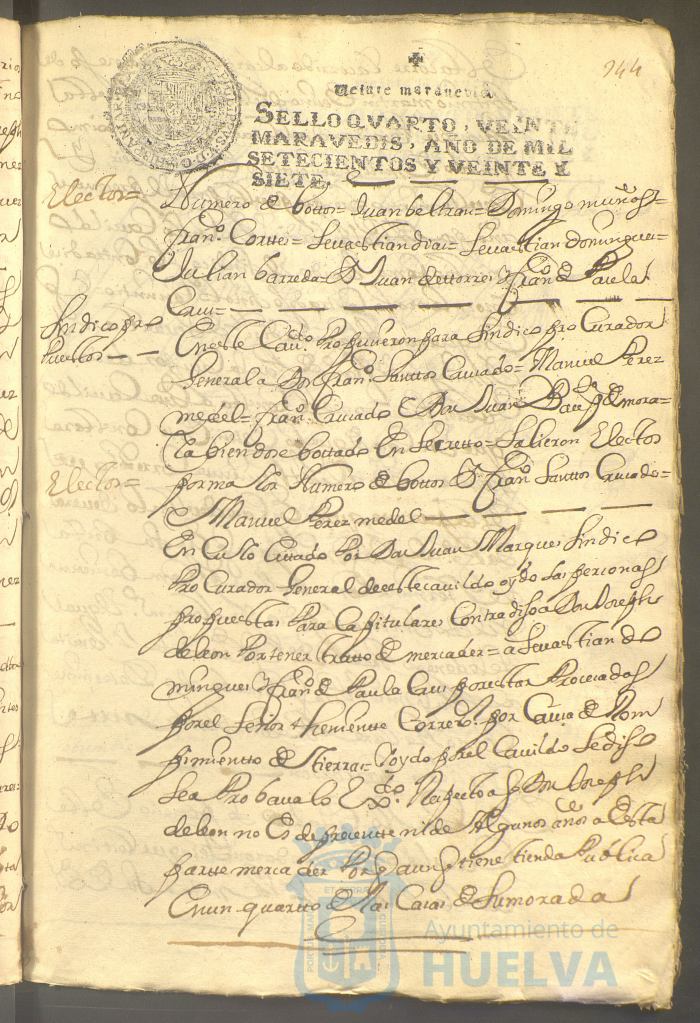 244
Veinte maravedis
SELLO QVARTO, VEINTE
MARAVEDIS, AÑO DE MIL
SETECIENTOS Y VEINTE Y
SIETE.
Elector=
Numero de bottos= Juan beltran= Domingo muños=
fran.co Corttes= Sevastian dias= Sevastian domingues=
Julian barreda= D.n Juan de ttorres Y fran.co de Paula
Cruz=
Sindico pro
puestos
En este Cav.do Propusieron para Sindico pro Curador
General a Dn fran.co Santtos Cruzado= Manuel Perez
medel= fran.co Cruzado Y Don Juan Bau.ta de mora=
Y abiendose bottado En secretto= Salieron Electos
Elector=
por maior Numero de bottos Dn fran.co Santtos Cruzado=
Y Manuel Perez medel
En Custo Cittado Por Don Juan Marques Sindico
Pro Curador General de este cavildo oydo las personas
propuestas Para Capitulares Contradijo a Don Joseph
de leon Por tener tratto de mercader= a Sevastian do
mingues Y fran.co de Paula Cruz por estar Procesados
por el Señor theniente Correx.or por Causa de Rom
pimientto de tierra= Y oydo por el Cavildo Se dijo
Sea Probava lo Ex.do Respecto a q Don Joseph
de leon no Es de presente ni de Algunos años a Esta
partte mercader Por q aunq tiene tienda Publica
En un quartto de Las Casas de Su morada
Ayuntamiento de
HUELVA